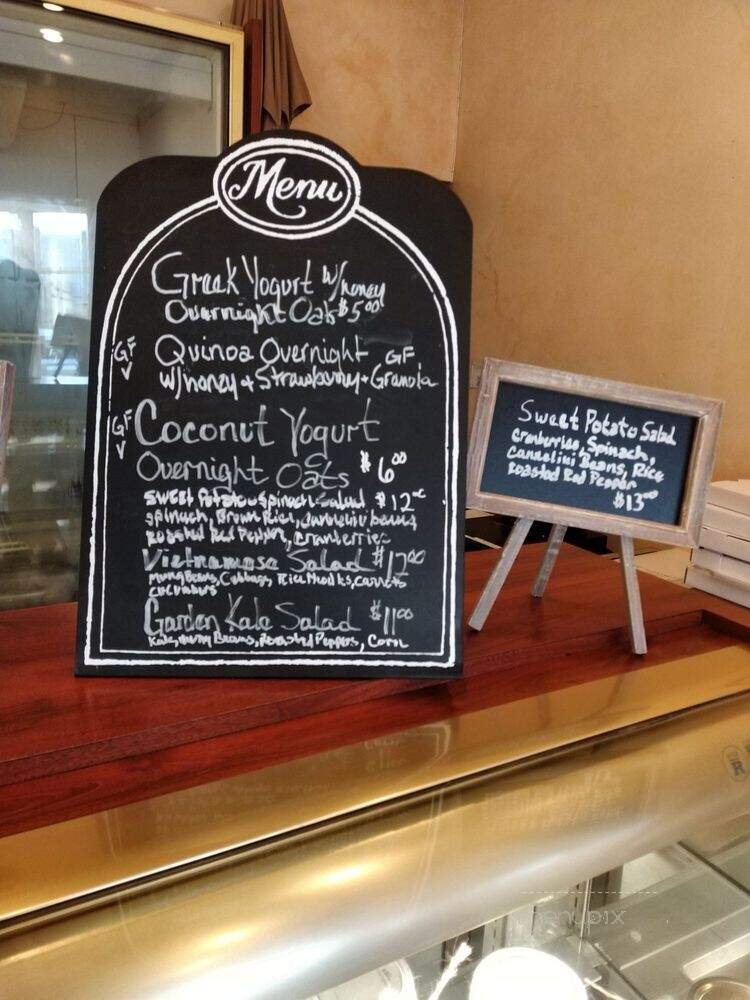 Menu
Greek Yogurt w/honey
Overnight Oats $5.00
GF
V
Quinoa Overnight GF
w/honey + Strawberry + Granola
GF
V
Coconut Yogurt
Overnight Oats $6.00
Sweet Potato + Spinach Salad $12
Spinach, Brown Rice, Cannelini beans
Roasted Red Pepper, Cranberries
Vietnamese Salad $12.00
Mung Beans, Cabbage, Rice Noodles, Carrots
Garden Kale Salad $11.00
Kale, Mung Beans, Roasted Peppers, Corn
Sweet Potato Salad
Cranberries, Spinach,
Cannelini Beans, Rice
Roasted Red Pepper
$13.00
menupix